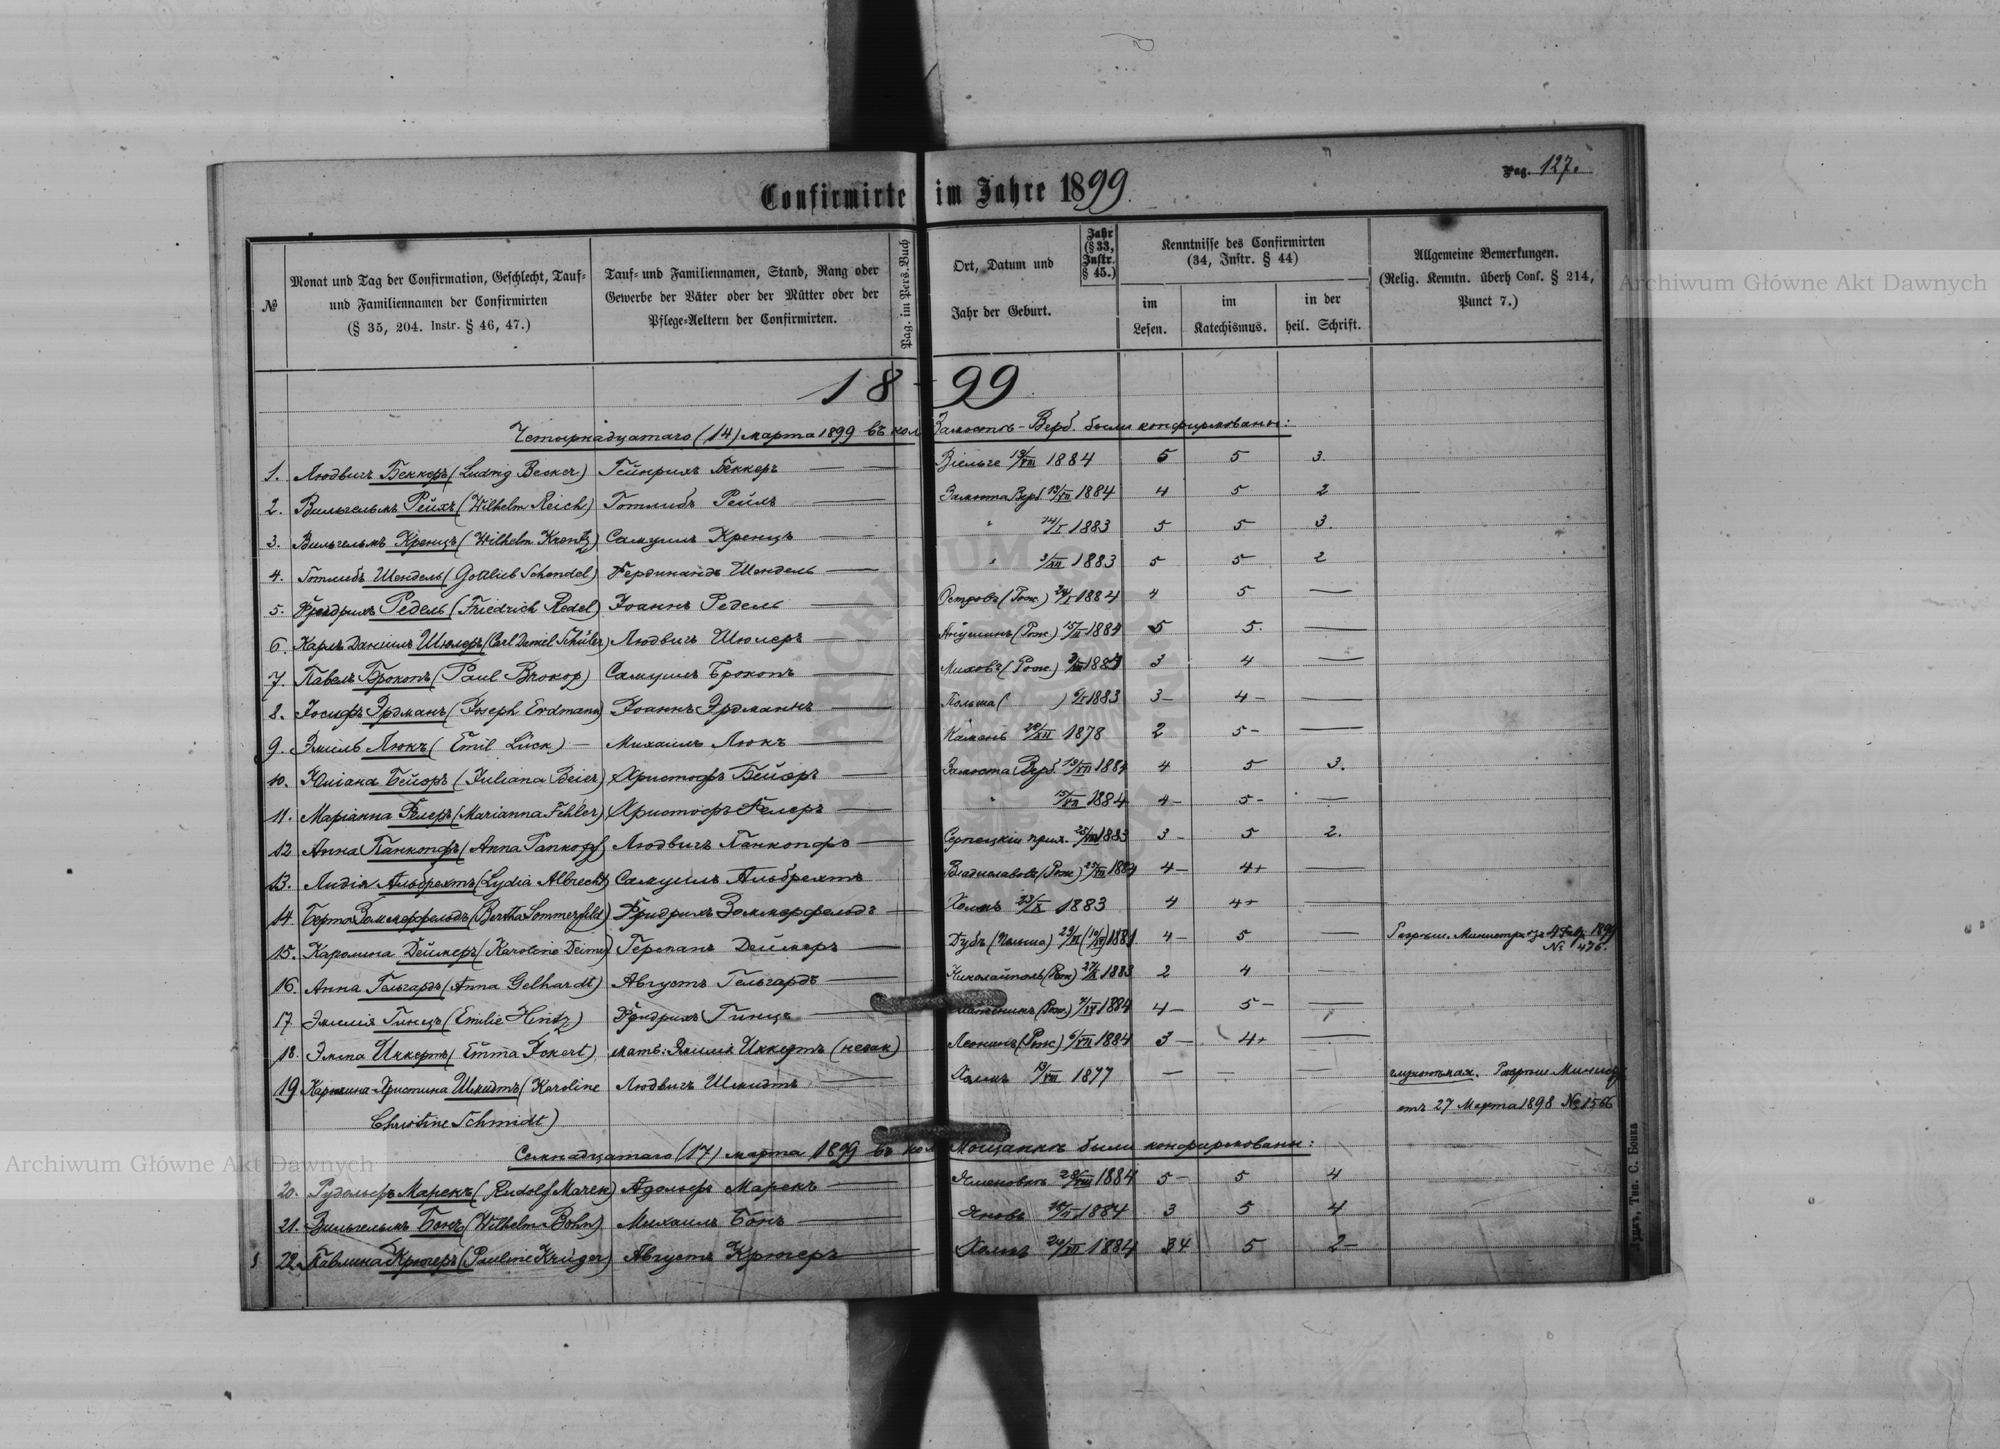 Pag. 127.
Confirmirte im Jahre 1899.
№
Monat und Tag der Confirmation, Geschlecht, Tauf- und Familiennamen der Confirmirten (§ 35, 204. Instr. § 46, 47.)
Tauf- und Familiennamen, Stand, Rang oder Gewerbe der Väter oder der Mütter oder der Pflege-Aeltern der Confirmirten.
Pag. im Pers.Buch
Ort, Datum und Jahr der Geburt.
Jahr (§ 33, Instr. § 45.)
Kenntnisse des Confirmirten (34, Instr. § 44)
im Lesen.
im Katechismus.
in der heil. Schrift.
Allgemeine Bemerkungen. (Relig. Kenntn. überh Conf. § 214, Punct 7.)
Archiwum Główne Akt Dawnych
18 - 99
Четырнадцатаго (14) марта 1899 въ кол. Замостъ-Верб. были конфирмованы:
1. Людвигъ Беккеръ (Ludwig Becker) Гейнрихъ Беккеръ — 1884 5 5 3.
2. Вильгельмъ Рейхъ (Wilhelm Reich) Готлибъ — Замоста Верб. 1884 4 5 2
3. Вильгельмъ Кренцъ (Wilhelm Krentz) Самуилъ Кренцъ — " 1883 5 5 3.
4. Готлибъ Шендель (Gottlieb Schendel) Фердинандъ Шендель — " 1883 5 5 2
5. Фридрихъ Редель (Friedrich Redel) Іоаннъ Редель — Островъ (Рож.) 1884 4 5 —
6. Карлъ Даніилъ Шюлеръ (Carl Daniel Schüler) Людвигъ Шюлеръ — (Рож.) 1884 5 5. —
7. Павелъ Брокопъ (Paul Brokop) Самуилъ Брокопъ — (Рож.) 3 4 —
8. Іосифъ Эрдманъ (Joseph Erdmann) Іоаннъ Эрдманнъ — Польша ( ) 1883 3 - 4 - —
9. Эмиль Люкъ (Emil Lück) — Михаилъ Люкъ — Камень 1878 2 5 - —
10. Юліана Бейеръ (Juliana Beier) Христофъ Бейеръ — Замоста Верб. 1884 4 5 3.
11. Маріанна Фелеръ (Marianna Fehler) Христофъ Фелеръ — " 1884 4 - 5 - —
12. Анна Панкопфъ (Anna Pankopf) Людвигъ Панкопфъ — 1883 3 - 5 2.
13. Лидія Альбрехтъ (Lydia Albrecht) Самуилъ Альбрехтъ Владиславовъ (Рож.) 1884 4 - 4+ —
14. Берта Зоммерфельдъ (Bertha Sommerfeld) Фридрихъ Зоммерфельдъ — Холмъ 1883 4 4+ —
15. Каролина Деймеръ (Karoline Deimer) Германъ Деймеръ — Дубъ (Польша) 4 - 5 — Разрѣш. Министр. отъ 4 Февр. 1899 № 476.
16. Анна Гельгардъ (Anna Gelhardt) Августъ Гельгардъ — Николайполь (Рож.) 1883 2 4 —
17. Эмилія Гинцъ (Emilie Hintz) Фридрихъ Гинцъ — (Рож.) 1884 4 - 5 - —
18. Эмма Иккертъ (Emma Ickert) мать: Эмилія Иккертъ Леонинъ (Рож.) 1884 3 - 4+ —
19 Каролина-Христина Шмидтъ (Karoline Людвигъ Шмидтъ — Холмъ 1877 — — — глухонѣмая. Разрѣш. Министр.
Christine Schmidt) отъ 27 Марта 1898 № 1566
Archiwum Główne Akt Dawnych
Семнадцатаго (17) марта 1899 въ кол. Мощанкѣ были конфирмованы:
20. Рудольфъ Марекъ (Rudolf Marek) Адольфъ Марекъ — 1884 5 - 5 4
21. Вильгельмъ Бонъ (Wilhelm Bohn) Михаилъ Бонъ — Яновъ 1884 3 5 4
22. Павлина Крюгеръ (Pauline Krüger) Августъ Крюгеръ — Холмъ 1884 5 2 -